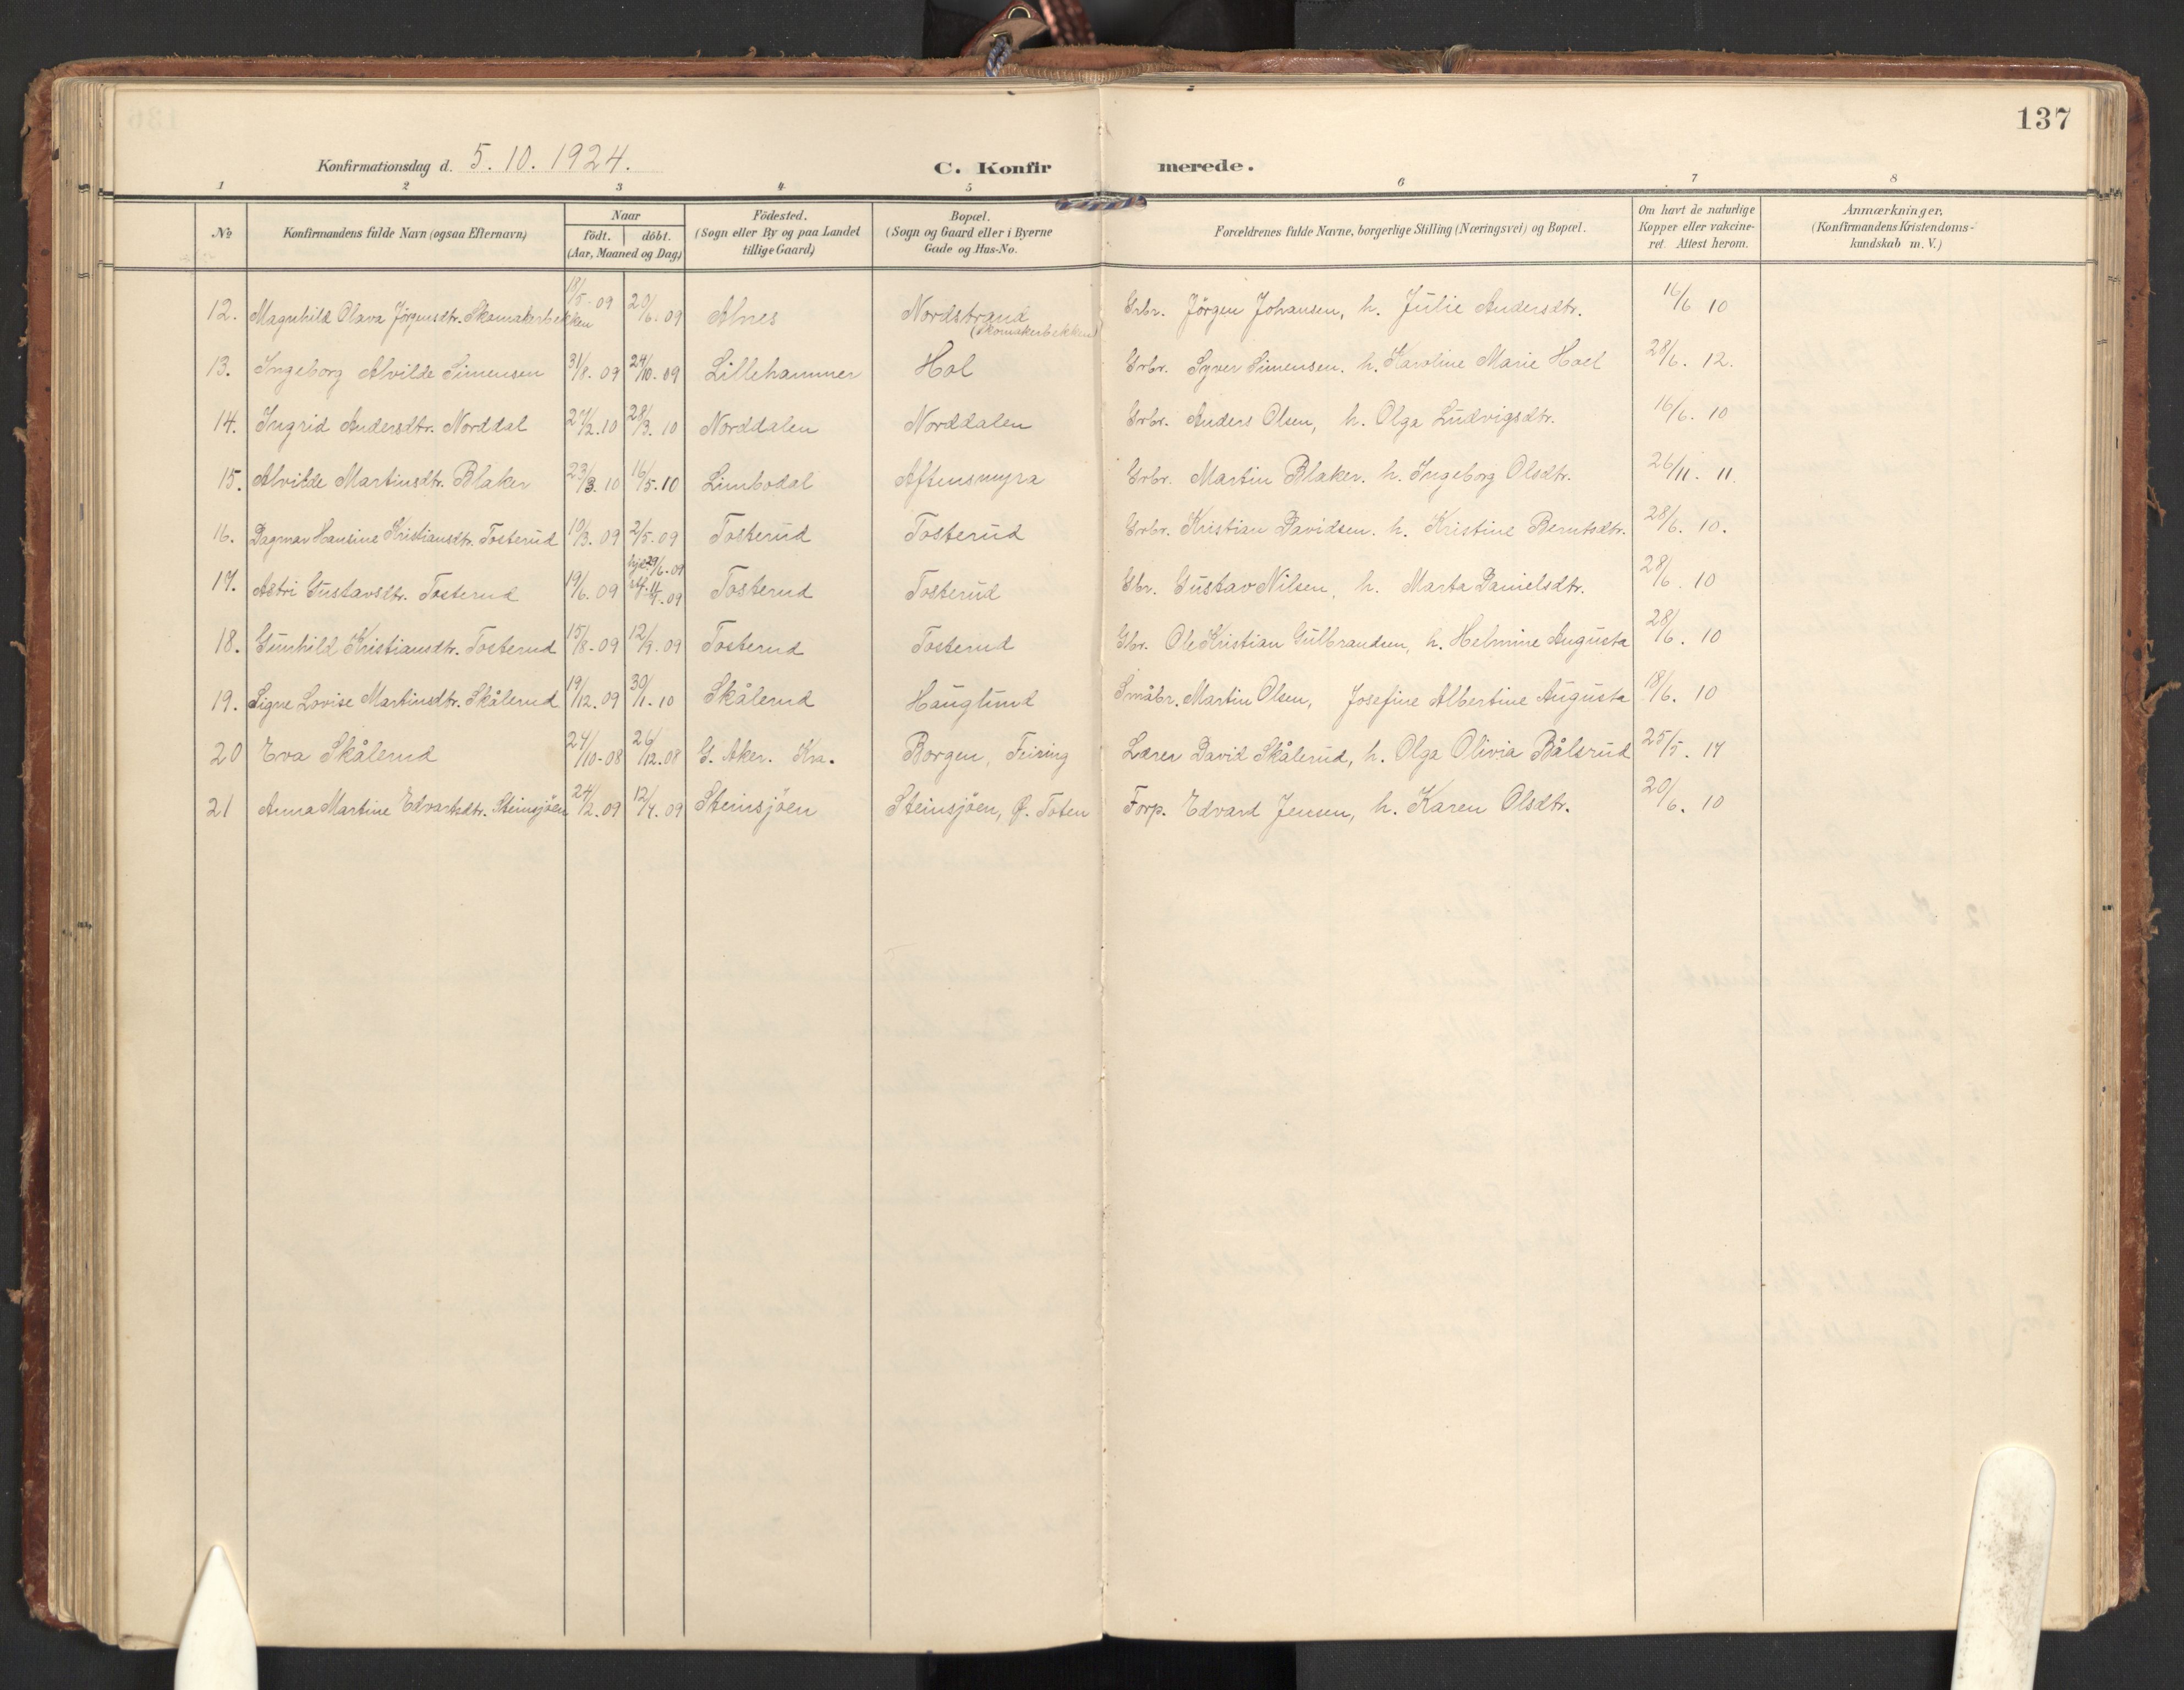 137
Konfirmationsdag d. 5. 10. 1924. C. Konfirmerede.
1 2 3 4 5 6 7 8
No Konfirmandens fulde Navn (ogsaa Efternavn) Naar födt. döbt. (Aar, Maaned og Dag) Födested. (Sogn eller By og paa Landet tillige Gaard) Bopæl. (Sogn og Gaard eller i Byerne Gade og Hus-No. Forældrenes fulde Navne, borgerlige Stilling (Næringsvei) og Bopæl. Om havt de naturlige Kopper eller vakcineret. Attest herom. Anmærkninger. (Konfirmandens Kristendomskundskab m. V.)
12. Magnhild Olava Jörgensdtr. Skomakerbekken 18/5-09 20/6.09 Alnes Nordstrand (Skomakerbekken) Grbr. Jörgen Johansen, h. Julie Andersdtr. 16/6 10
13. Ingeborg Alvilde Simensen 31/8.09 24/10.09 Lillehammer Hol Grbr. Syver Simensen. h. Karoline Marie Hoel 28/6. 12.
14. Ingrid Andersdtr. Norddal 27/2.10 28/3.10 Norddalen Norddalen Grbr. Anders Olsen, h. Olga Ludvigsdtr. 16/6. 10
15. Alvilde Martinsdtr. Blaker 23/3.10 16/5.10 Limbodal Aftensmyra Grbr. Martin Blaker. h. Ingeborg Olsdtr. 26/11. 11.
16. Dagmar Hansine Kristiansdtr. Tosterud 19/3.09 2/5.09 Tosterud Tosterud Grbr. Kristian Davidsen. h. Kristine Berntsdtr. 28/6. 10.
17. Astri Gustavsdtr. Tosterud 19/6.09 hjd. 29/6.09 Tosterud Tosterud Gbr. Gustav Nilsen, h. Marta Danielsdtr. 28/6. 10
18. Gunhild Kristiansdtr. Tosterud 15/8-09 12/9.09 Tosterud Tosterud Gbr. Ole Kristian Gulbrandsen, h. Helmine Augusta 28/6. 10
19. Signe Lovise Martinsdtr. Skålerud 19/12.09 30/1.10 Skålerud Hauglund Småbr. Martin Olsen, Josefine Albertine Augusta 18/6. 10
20 Eva Skålerud 24/10-08 26/12.08 G. Aker. Kra. Borgen, Feiring Lærer David Skålerud, h. Olga Olivia Bålsrud 25/5. 17
21 Anna Martine Edvartsdtr. Steinsjöen 24/2.09 12/4.09 Steinsjöen Steinsjöen, Ø. Toten Forp. Edvard Jensen, h. Karen Olsdtr. 20/6. 10